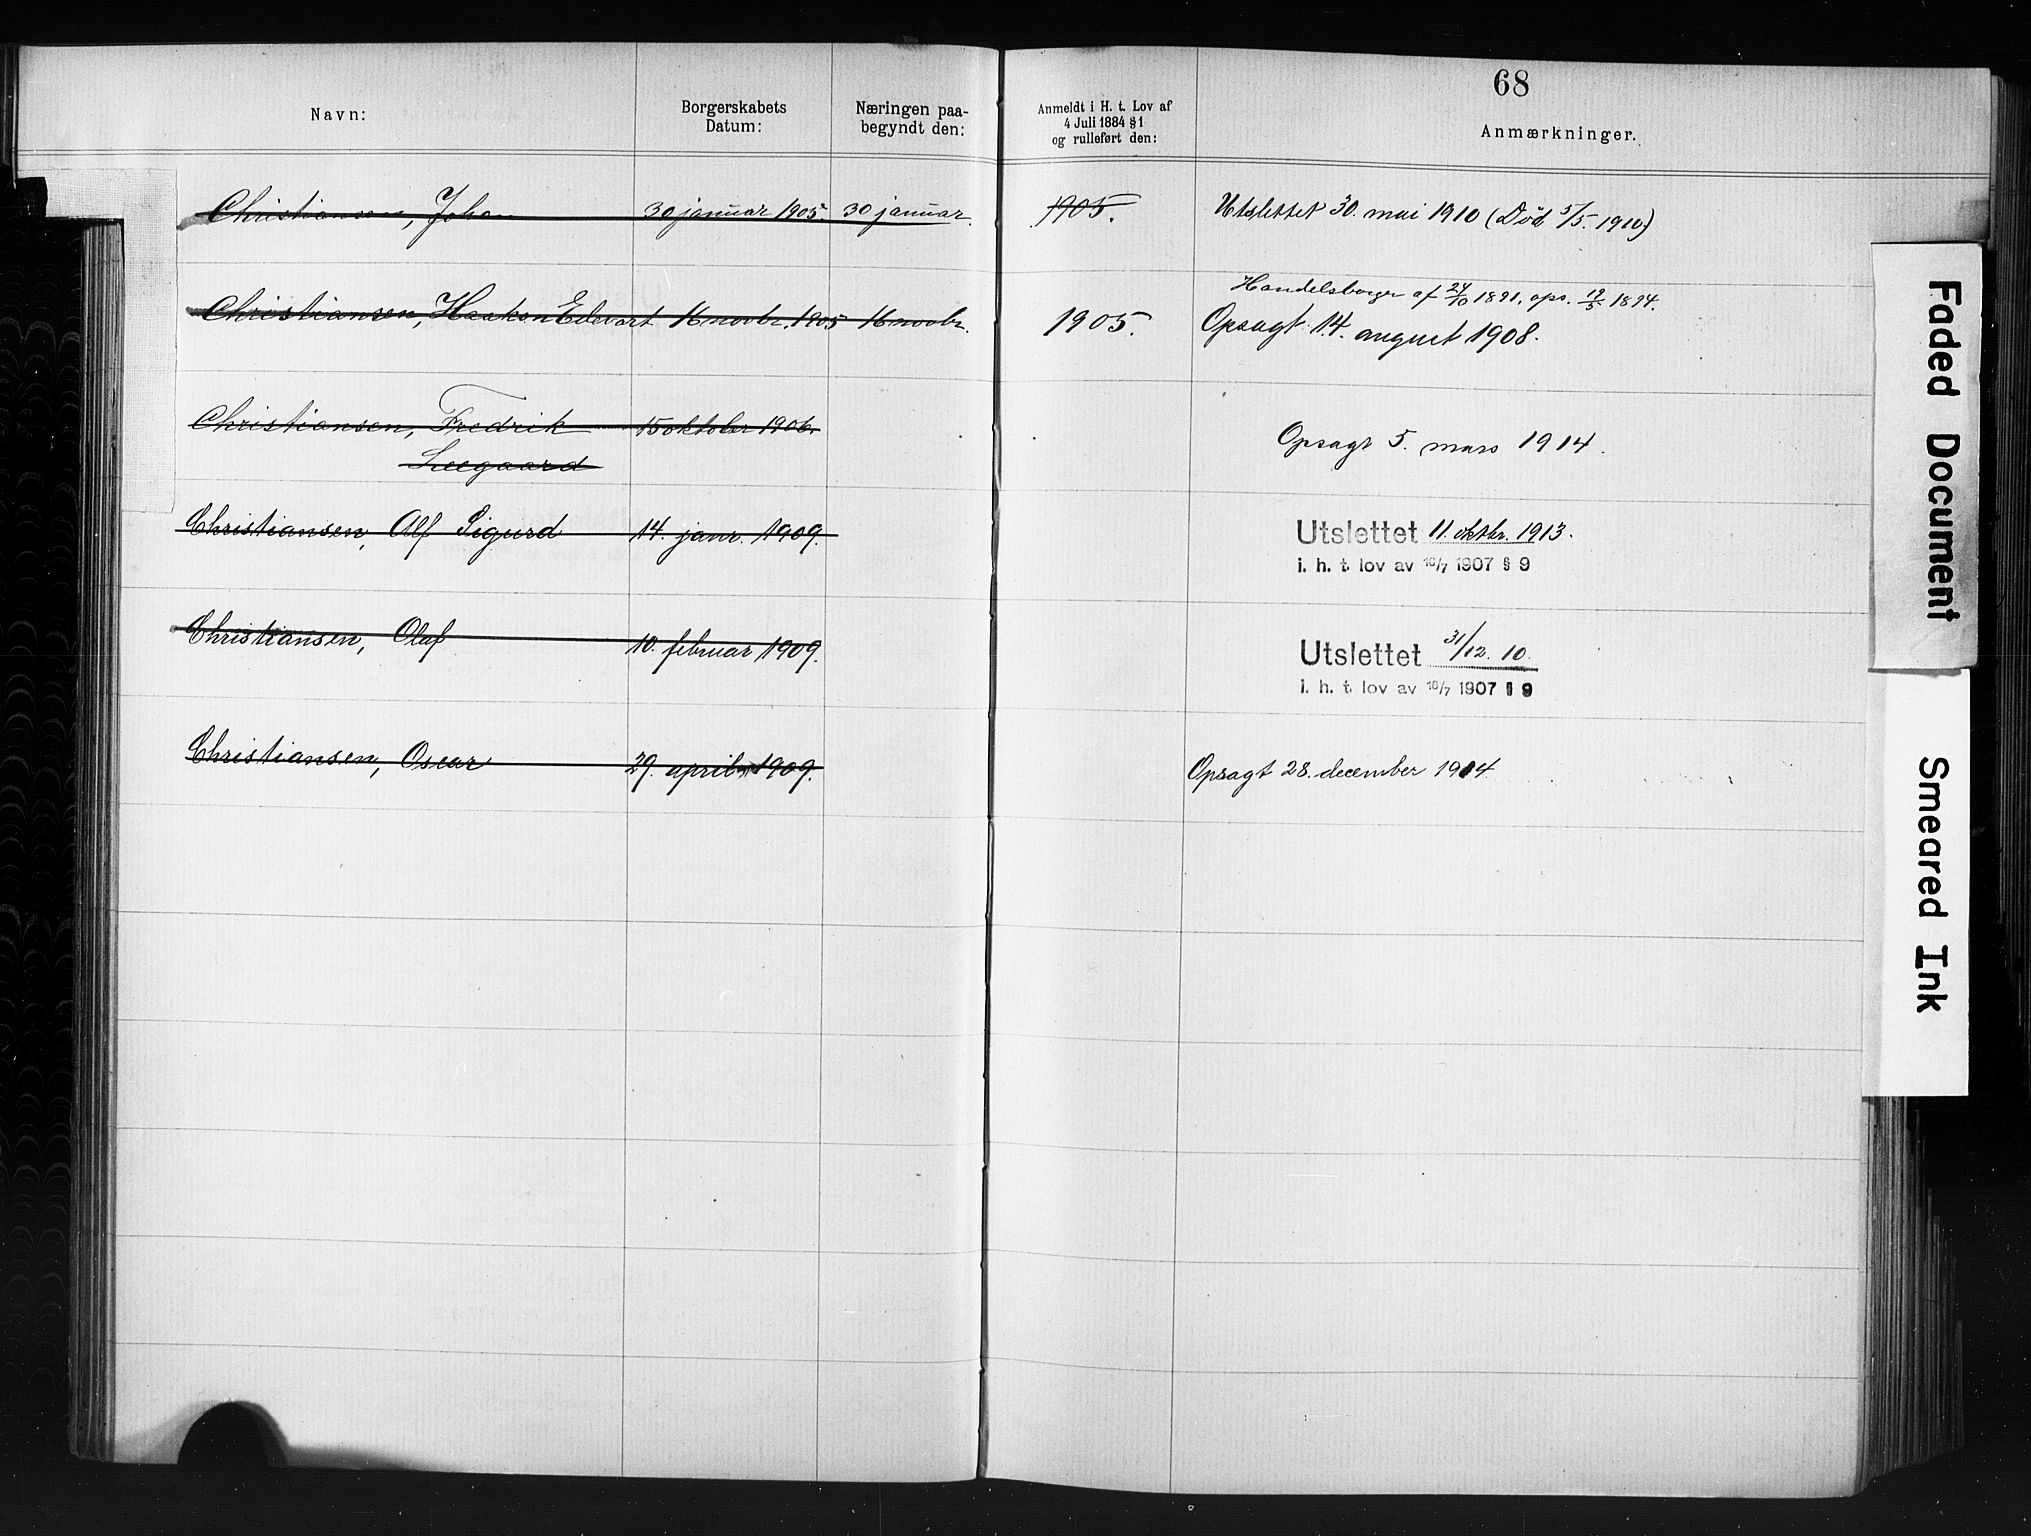 68
Navn:
Borgerskabets
Datum:
Næringen paa-
begyndt den:
Anmeldt i H. t. Lov af
4 Juli 1884 § 1
og rulleført den:
Anmærkninger.
Christiansen, Johan 30 januar 1905 30 januar. 1905. Utslettet 30. mai 1910 (Død 5/5. 1910)
Handelsborger af 24/10 1891, ops. 19/5 1894.
Christiansen, Haakon Edevart 16 novbr. 1905 16 novbr. 1905. Opsagt 14. august 1908.
Christiansen, Fredrik 15 oktober 1906. Opsagt 5. mars 1914.
Leegaard
Christiansen, Alf Sigurd 14. janr. 1909. Utslettet 11. oktbr. 1913.
i. h. t. lov av 16/7 1907 § 9
Christiansen, Olaf 10. februar 1909. Utslettet 31/12. 10.
i. h. t. lov av 16/7 1907 § 9
Christiansen, Oscar 29. april 1909. Opsagt 28. december 1914
Faded Document
Smeared Ink